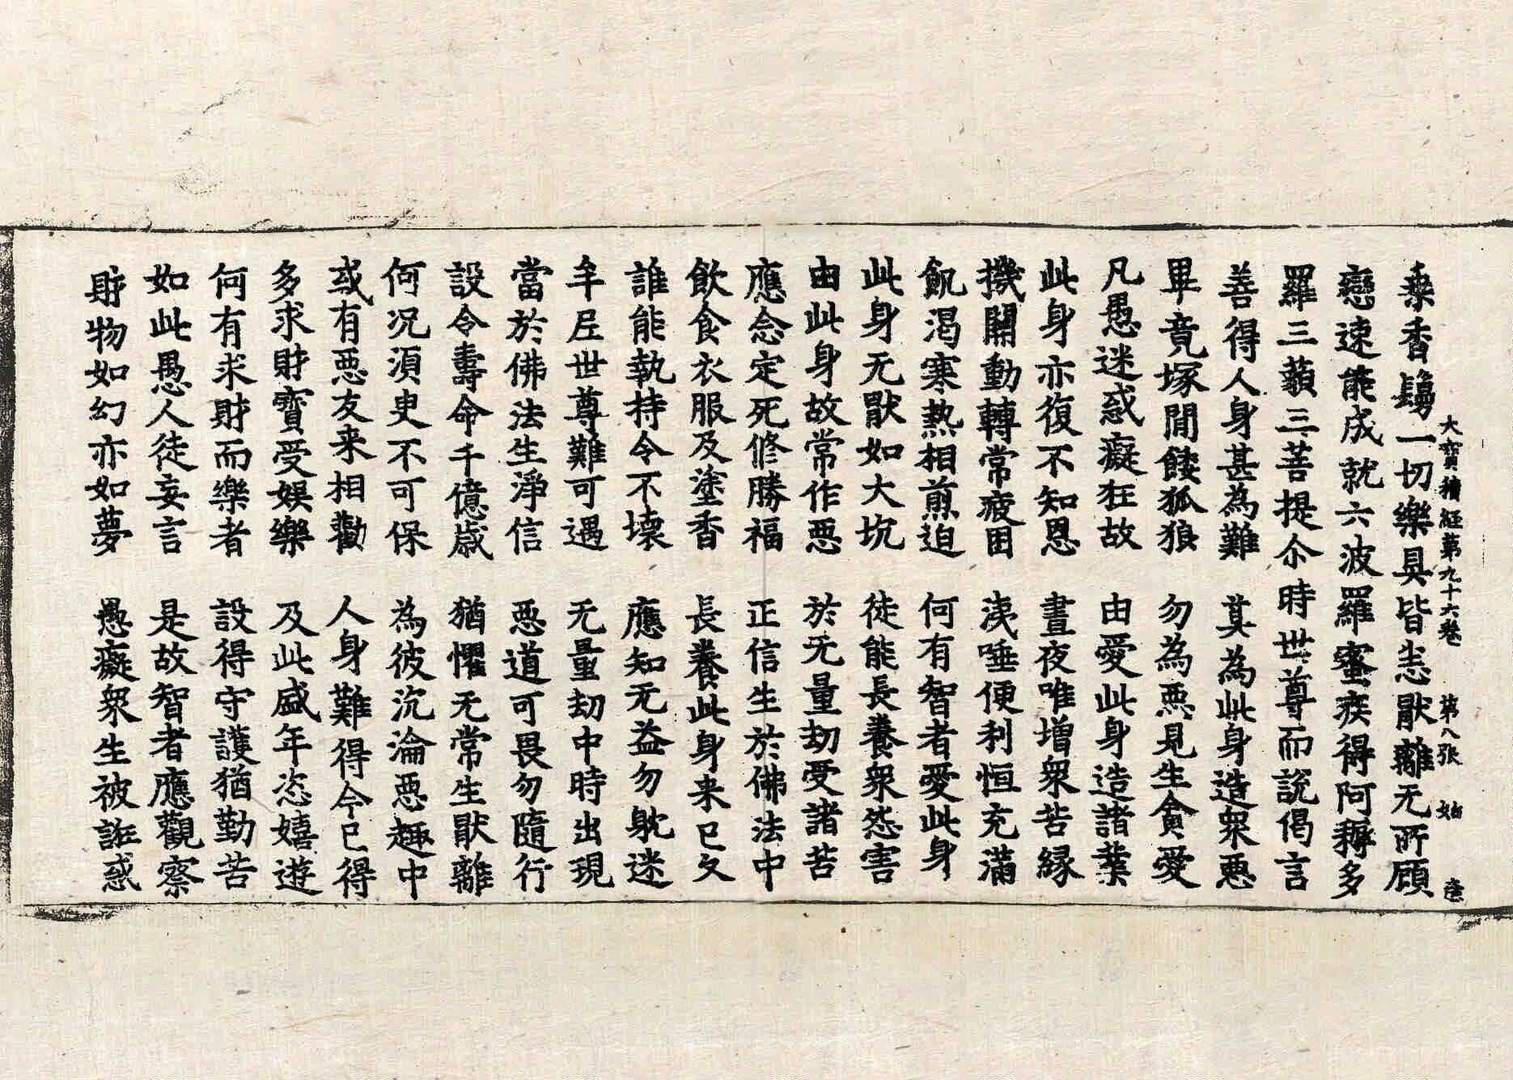 大寶積經第九十六卷 第八張 始
乘香鬘一切樂具皆悉猒離无所顧
戀速能成就六波羅蜜疾得阿耨多
羅三藐三菩提尒時世尊而說偈言
善得人身甚為難 莫為此身造衆惡
畢竟塚間餧狐狼 勿為惡見生貪愛
凡愚迷惑癡狂故 由愛此身造諸業
此身亦復不知恩 晝夜唯增衆苦緣
機關動轉常疲困 洟唾便利恒充滿
飢渴寒熱相煎迫 何有智者愛此身
此身无猒如大坑 徒能長養衆怨害
由此身故常作惡 於无量劫受諸苦
應念定死修勝福 正信生於佛法中
飲食衣服及塗香 長養此身来已久
誰能執持令不壞 應知无益勿躭迷
牟尼世尊難可遇 无量劫中時出現
當於佛法生淨信 惡道可畏勿隨行
設令壽命千億歲 猶懼无常生猒離
何况湏臾不可保 為彼沉淪惡趣中
或有惡友来相勸 人身難得今已得
多求財寶受娛樂 及此盛年恣嬉遊
何有求財而樂者 設得守護猶勤苦
如此愚人徒妄言 是故智者應觀察
財物如幻亦如夢 愚癡衆生被誑惑